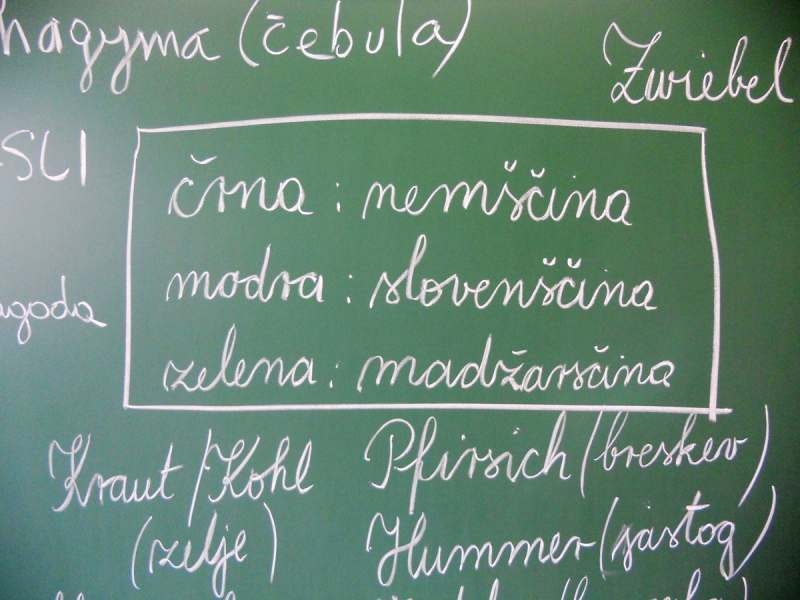 hagyma (čebula)
Zwiebel
SLI
črna : nemščina
modra : slovenščina
agoda
zelena : madžarščina
Kraut/Kohl Pfirsich (breskev)
(zelje) Hummer (jastog)